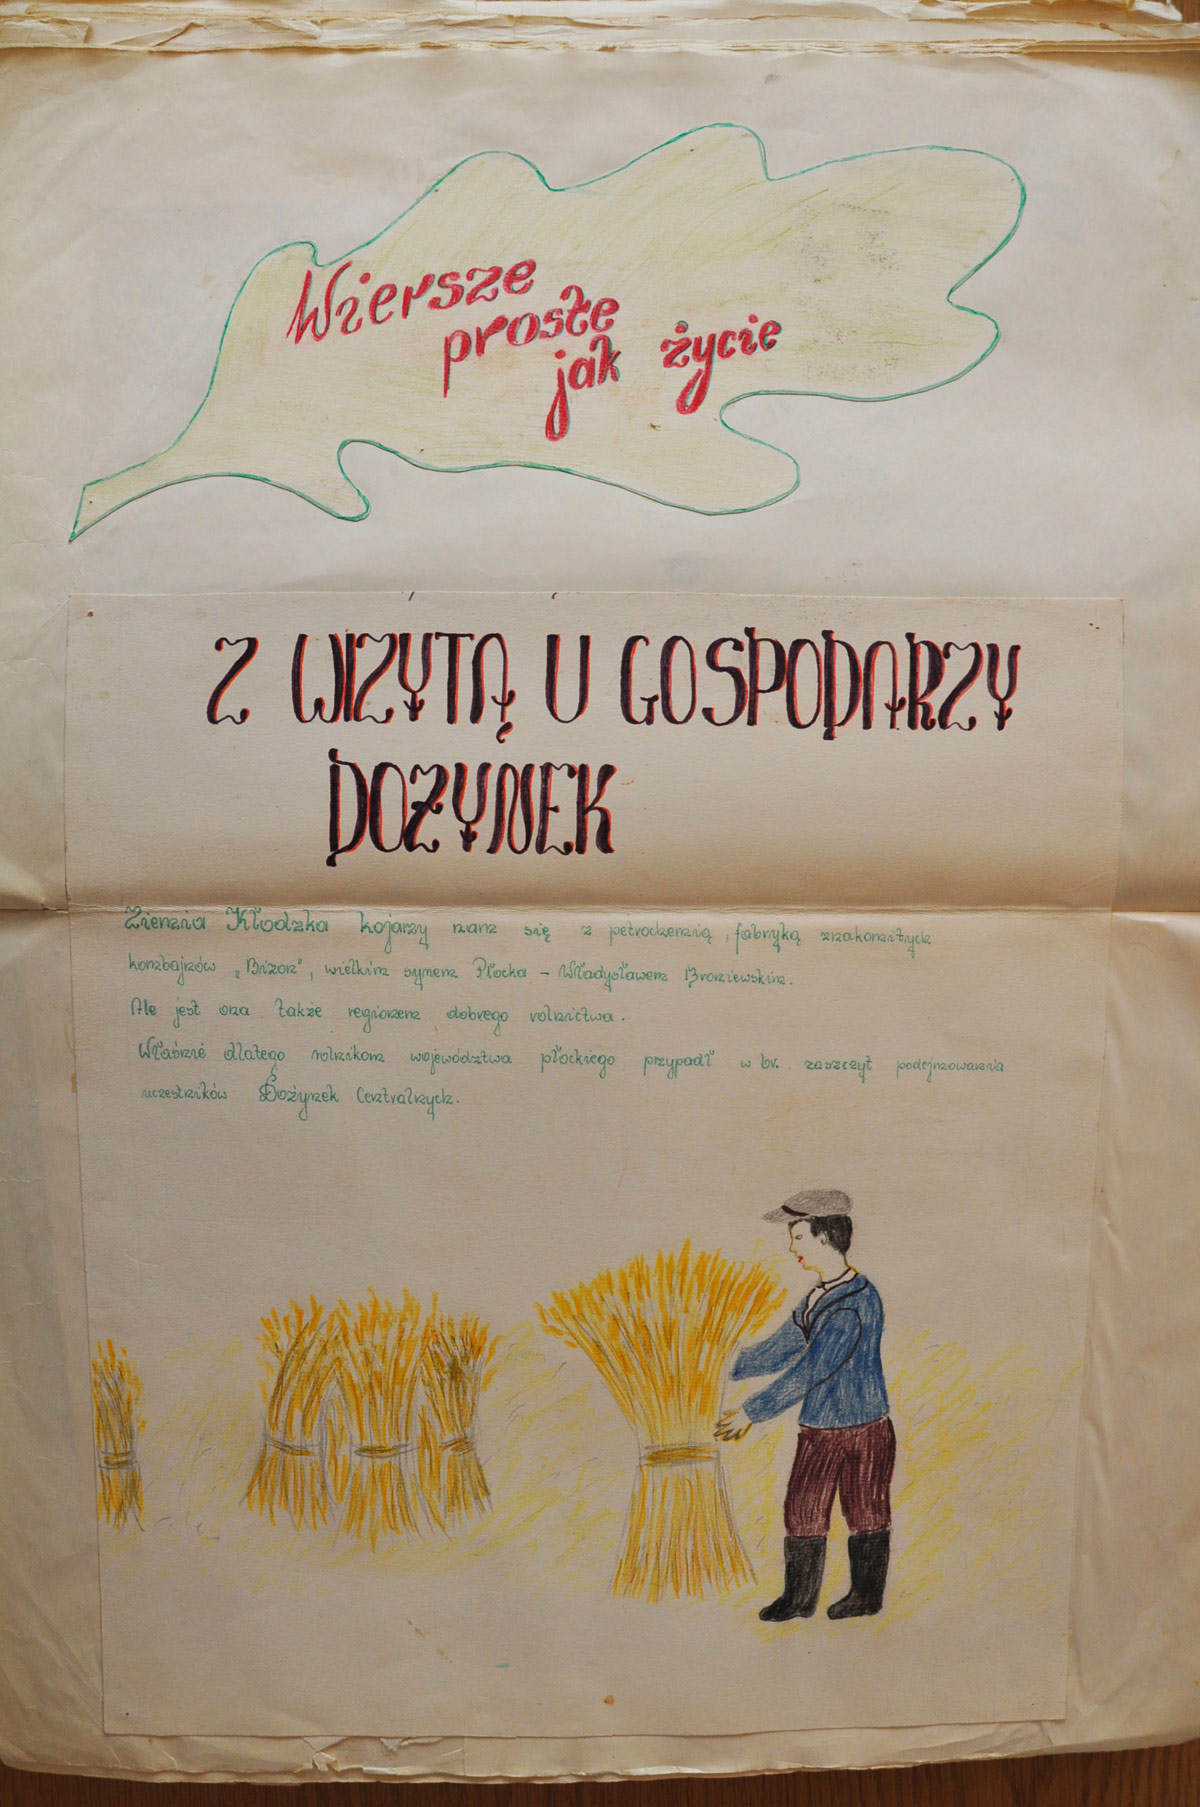 Wiersze
proste
jak życie
Z WIZYTĄ U GOSPODARZY
DOŻYNEK
Ziemia Kłodzka kojarzy nam się z petrochemią, fabryką znakomitych
kombajnów „Bizon", wielkim synem Płocka - Władysławem Broniewskim.
Ale jest ona także regionem dobrego rolnictwa.
Właśnie dlatego rolnikom województwa płockiego przypadł w br. zaszczyt podejmowania
uczestników Dożynek Centralnych.